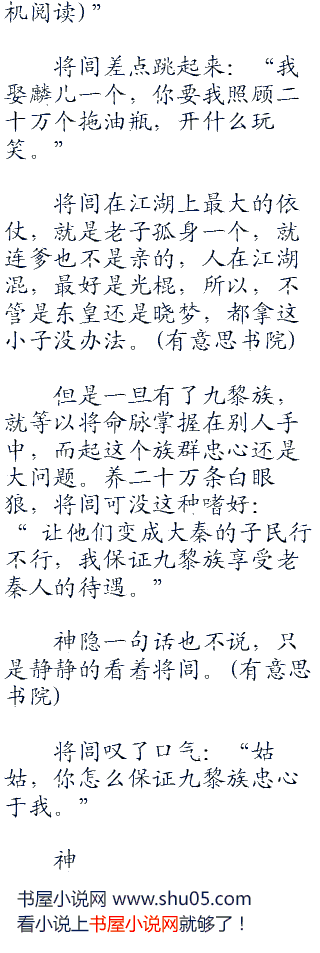 机阅读)”
将闾差点跳起来：“我
娶麟儿一个，你要我照顾二
十万个拖油瓶，开什么玩
笑。”
将闾在江湖上最大的依
仗，就是老子孤身一个，就
连爹也不是亲的，人在江湖
混，最好是光棍，所以，不
管是东皇还是晓梦，都拿这
小子没办法。(有意思书院)
但是一旦有了九黎族，
就等以将命脉掌握在别人手
中，而起这个族群忠心还是
大问题。养二十万条白眼
狼，将闾可没这种嗜好：
“ 让他们变成大秦的子民行
不行，我保证九黎族享受老
秦人的待遇。”
神隐一句话也不说，只
是静静的看着将闾。(有意思
书院)
将闾叹了口气：“姑
姑，你怎么保证九黎族忠心
于我。”
神
书屋小说网 www.shu05.com
看小说上书屋小说网就够了！